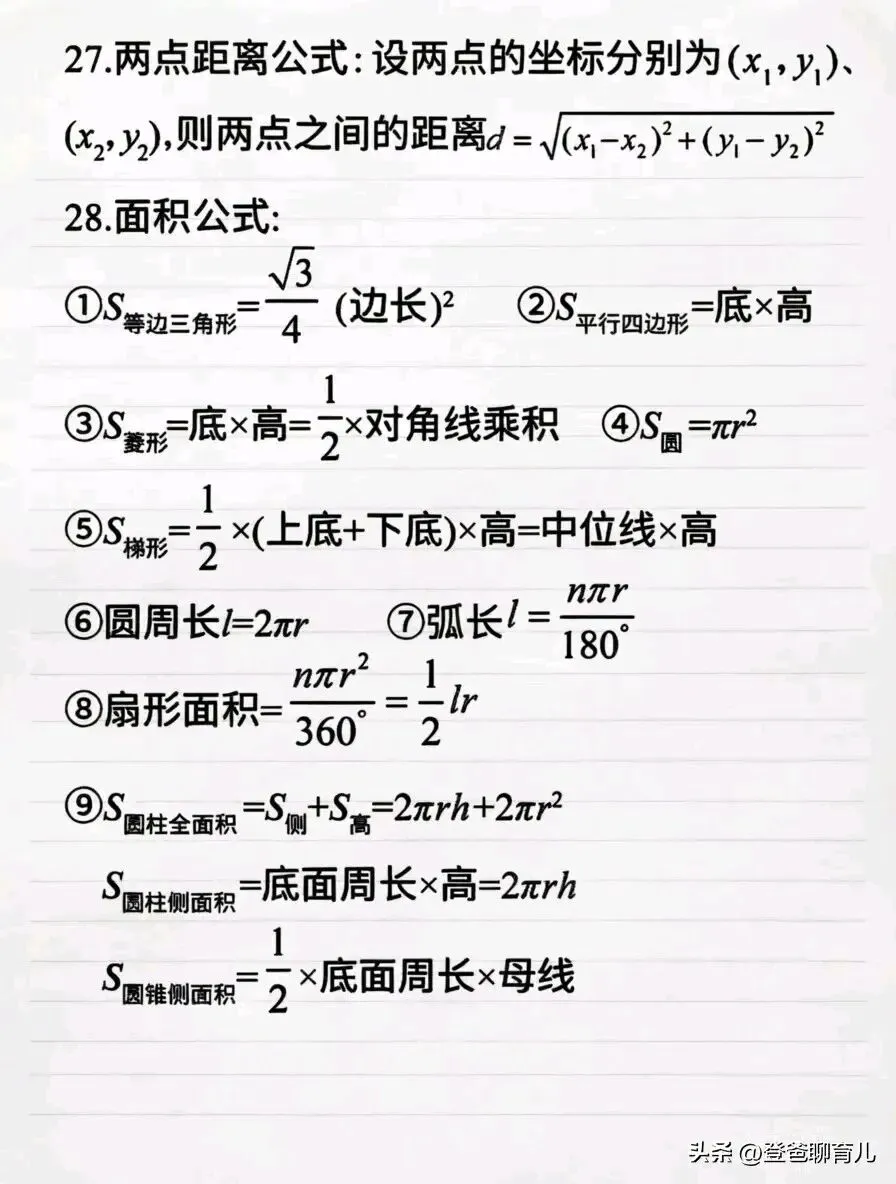 27.两点距离公式:设两点的坐标分别为(x₁,y₁)、
(x₂,y₂),则两点之间的距离d=√(x₁−x₂)²+(y₁−y₂)²
28.面积公式:
①S等边三角形=√3/4 (边长)² ②S平行四边形=底×高
③S菱形=底×高=1/2×对角线乘积 ④S圆=πr²
⑤S梯形=1/2×(上底+下底)×高=中位线×高
⑥圆周长l=2πr ⑦弧长l=nπr/180°
⑧扇形面积=nπr²/360°=1/2lr
⑨S圆柱全面积=S侧+S高=2πrh+2πr²
S圆柱侧面积=底面周长×高=2πrh
S圆锥侧面积=1/2×底面周长×母线
头条 @登爸聊育儿